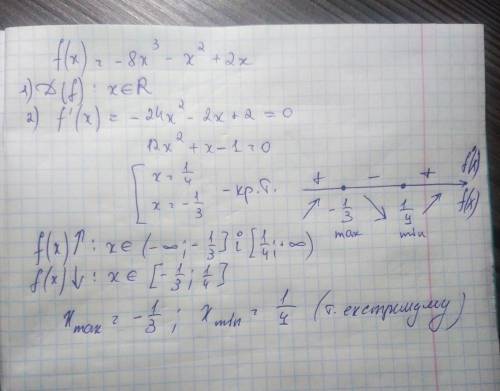 f(x) = -8x³ - x² + 2x
1) D(f) : x∈R
2) f'(x) = -24x² - 2x + 2 = 0
12x² + x - 1 = 0
[ x = 1/4
x = -1/3 - кр.т.
+ - + f'(x)
-1/3 1/4 f(x)
max min
f(x)↑ : x∈(-∞; -1/3] і [1/4; +∞)
f(x)↓ : x∈[-1/3; 1/4]
x max = -1/3 ; x min = 1/4 (т. екстримуму)